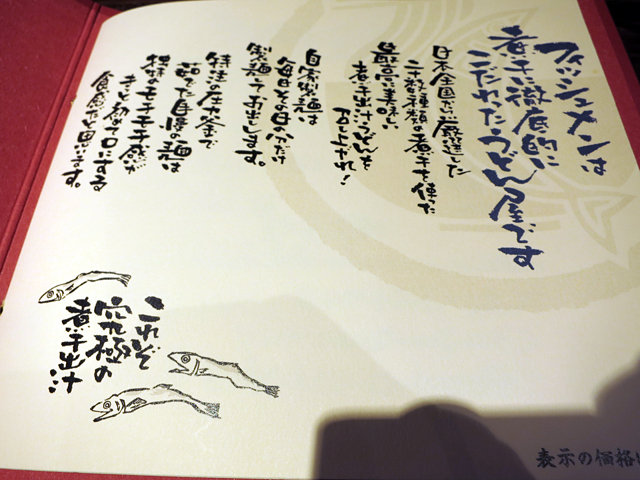 フィッシュメンは
煮干に徹底的に
こだわったうどん屋です
日本全国から厳選した
二十数種類の煮干を使った
最高に美味い
煮干出汁うどんを
召し上がれ！
自家製麺は
毎日その日の分だけ
製麺してお出しします。
特注の圧力釜で
茹でた自慢の麺は
独特のモチモチ感が
きっと初めて口にする
食感だと思います。
これぞ
究極の
煮干出汁
表示の価格は